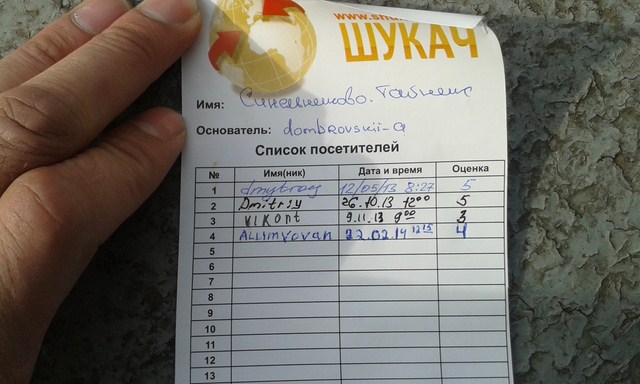 www.shu
ШУКАЧ
Имя: Синельниково. Тайник
Основатель: dombrovskii-a
Список посетителей
№ Имя(ник) Дата и время Оценка
1 dmytrog 12/05/13 8:27 5
2 Dmitriy 26.10.13 12⁰⁰ 5
3 VIKont 9.11.13 9⁰⁰ 3
4 22.02.14 12¹⁵ 4
5
6
7
8
9
10
11
12
13